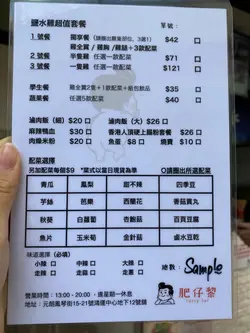 鹽水雞超值套餐 單號：
1 號餐 獨享餐（請圈出雞隻部位，3選1） $42 口
雞全翼 / 雞胸 / 雞髀＋3款配菜
2 號餐 半隻雞 任選一款配菜 $71 口
3 號餐 一隻雞 任選5款配菜 $121 口
學生餐 雞全翼2隻＋1款配菜＋紙包飲品 $35 口
蔬菜餐 任選5款配菜 $35 口
滷肉飯（細）$20 口 滷肉飯（大）$26 口
麻辣鴨血 $30 口 香港人頂硬上腸粉套餐 $26 口
肉燥米粉 $20 口 魚蛋 $8 口 燒賣 $10 口
配菜選擇
另加配菜每個$9 *菜式以當日現貨為準 O請圈出所選配菜
青瓜 鳳梨 甜不辣 四季豆
芋絲 芭樂 西蘭花 香菇貢丸
秋葵 白蘿蔔 杏鮑菇 百頁豆腐
魚片 玉米筍 金針菇 鹵水豆乾
味道選擇（必填）
小辣 口 中辣 口 大辣 口
走辣 口 走蔥 口 走蒜 口
總數：Sample
營業時間：13:00 - 20:00，逢星期一休息
地址：元朗鳳琴街15-21號鴻運中心地下12號舖
肥仔黎
fatty lai